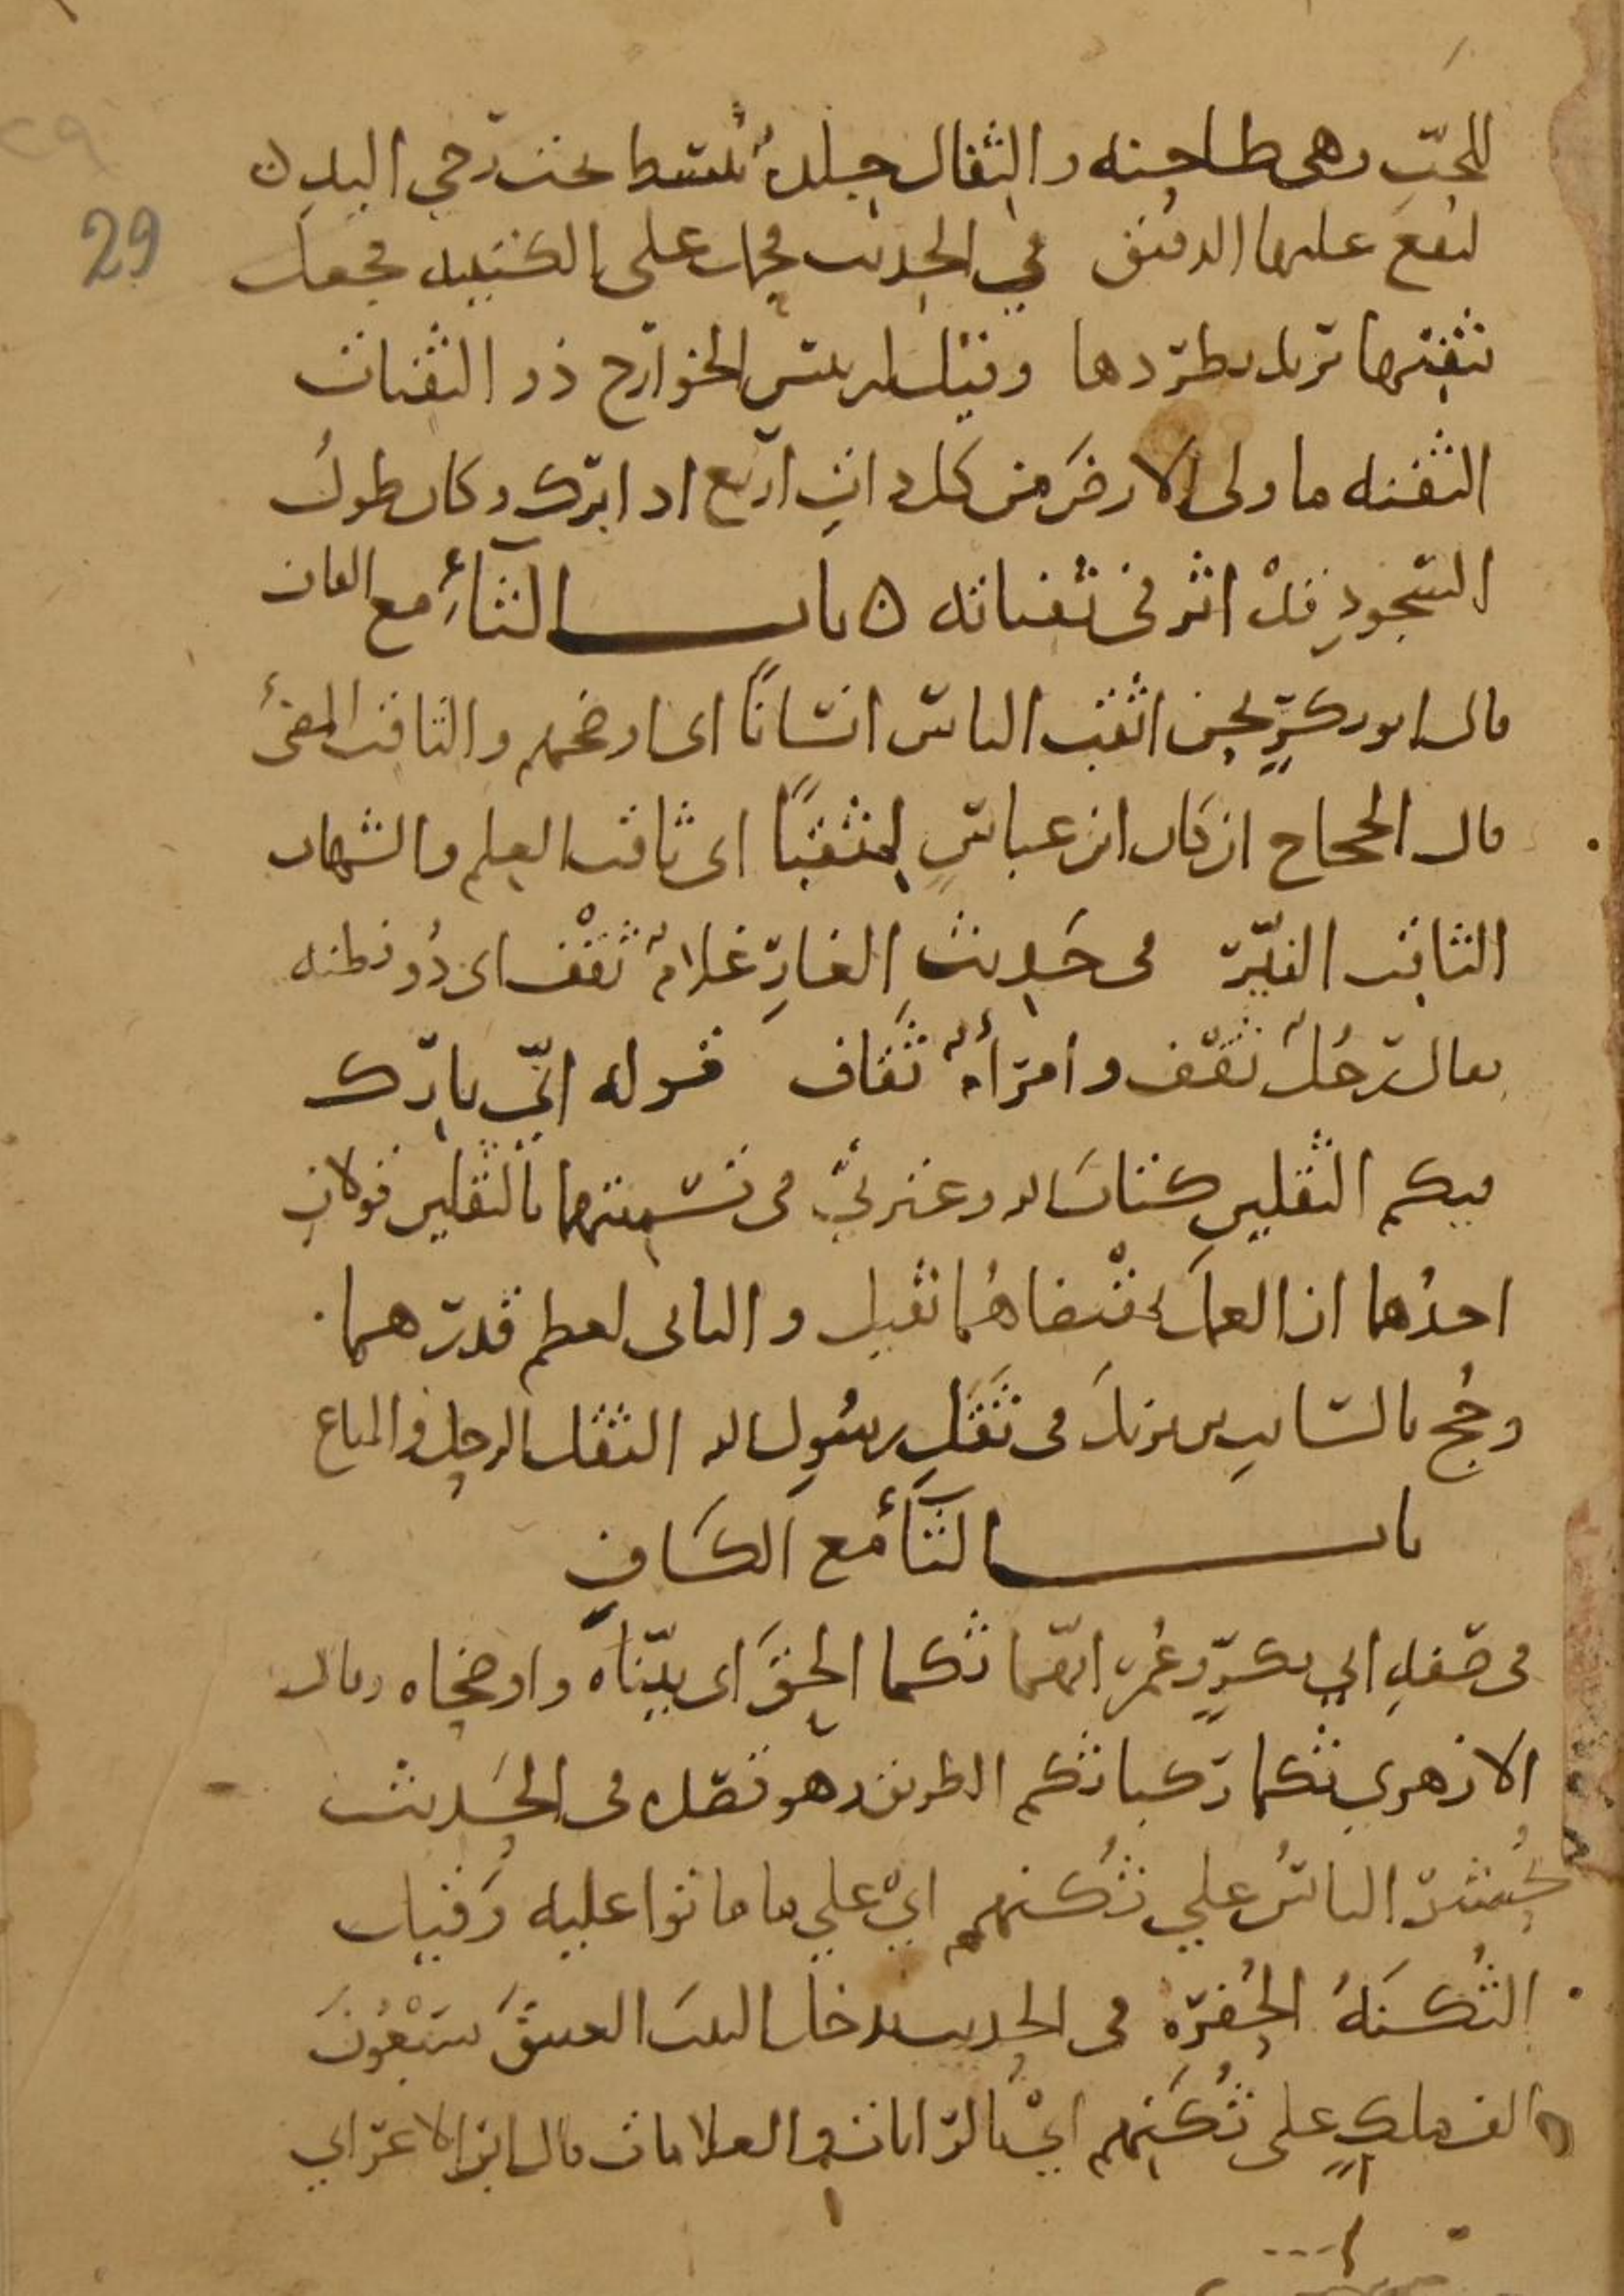 للحبّ وهى طاحنه والثفال جلدةٌ تُبسط تحت رحي اليد ن
29
ليقع عليها الدقيق في الحديث فحمل على الكتيبه فجعل
يثفنها تريد يطردها وقيل لرئيس الخوارج ذو الثفنات
الثفنه ما ولى الارض من كل ذات اربع اذا برك وكان طول
السّجودِ قدْ اثر فى ثفناته ن باب الثآءِ مع القاف
قال ابو بكرٍ نحن اثقب الناس انسابًا اى اوضحهم والثاقب المضئ
قال الحجاج ان كان ابن عباسٍ لمثقبًا اى ثاقب العلم والشهاب
الثاقب النيّر فى حَديثِ الغارِ غلامٌ ثَقْف اى ذُو فطنه
يقال رجُلٌ ثقف وامرأةٌ ثَقاف قوله انّي تارك
فيكم الثقلين كتابَ الله وعترتيّ فى تسميتهما بالثقلين قولان
احدُهما ان العمل بمقتضاهُما ثقيل والثانى لعظم قدرهما
وحُج بالسّايب بن يزيدَ فى ثَقَلِ رسُولِ الله الثقل الرحل والمتاع
باب الثآء مع الكافِ
فى صفةِ ابي بكرٍ وعُمر انهّما ثكما الحقَ اى بيّناه واوضحاه وقال
الازهري ثكما ركبا ثكم الطريق وهو قصده فى الحَديث
يُحشرُ الناسُ علي ثُكنهم ايْ علي ما ماتوا عليه وَقيل
الثُكنَهُ الحُفره فى الحديث يدخل البيتَ العتيقَ سَبْعُونَ
الف ملكٍ على ثُكَنِهم ايْ بالرّايات والعلامات قال ابن الاعرابي